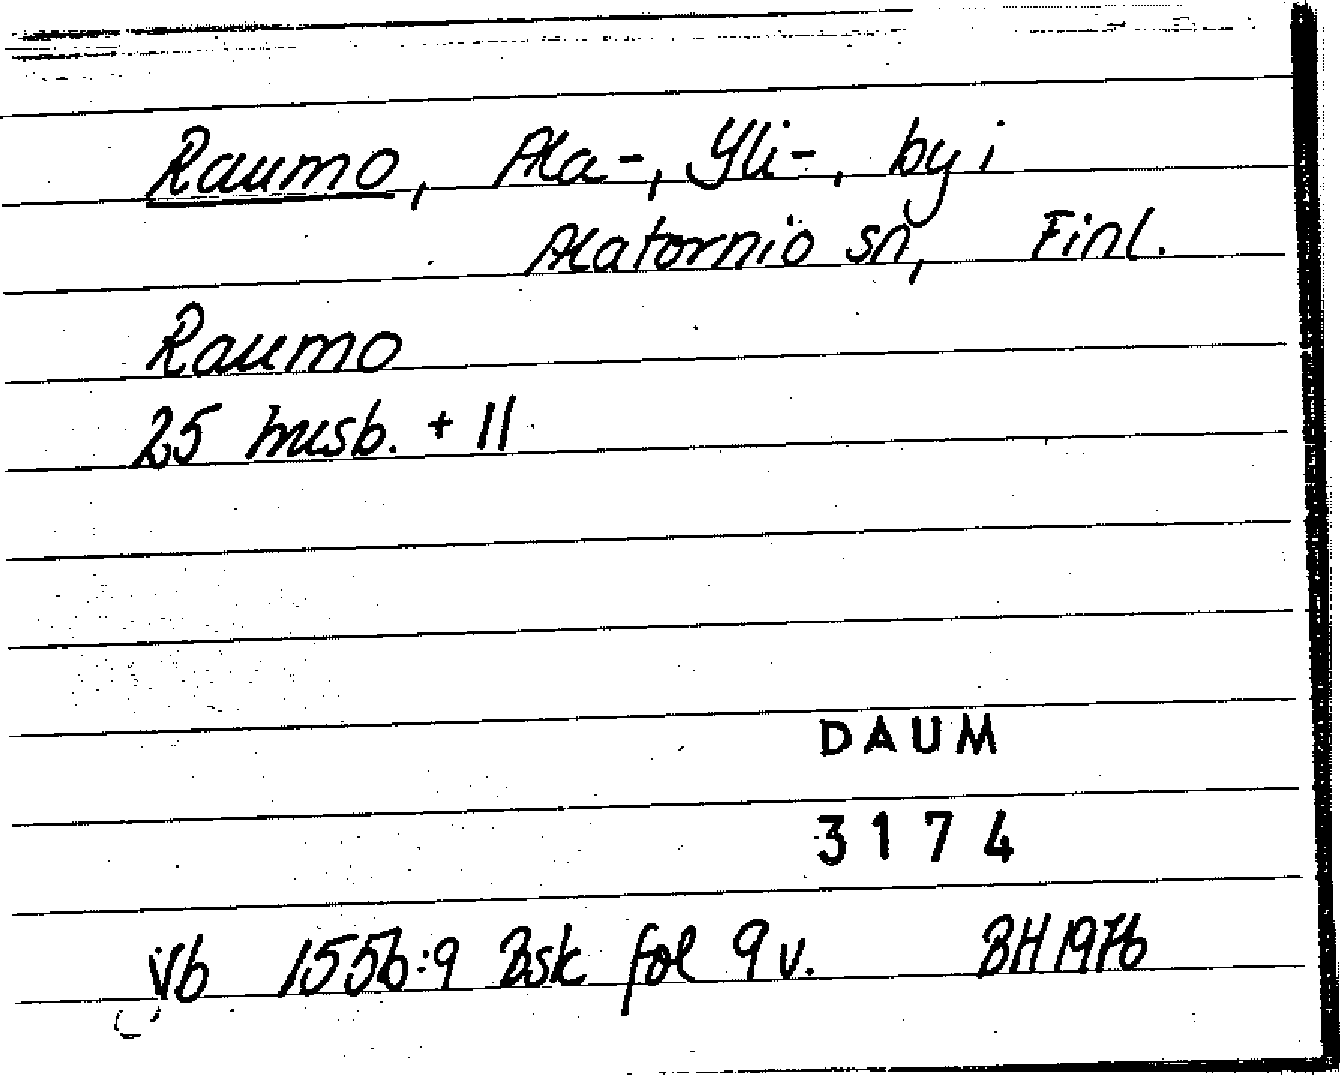 Raumo, Ala-, Yli-, by i
Alatornio sn, Finl.
Raumo
25 husb. + 11
DAUM
3174
Vb 1556:9 Bsk fol 9 v. BH 1976